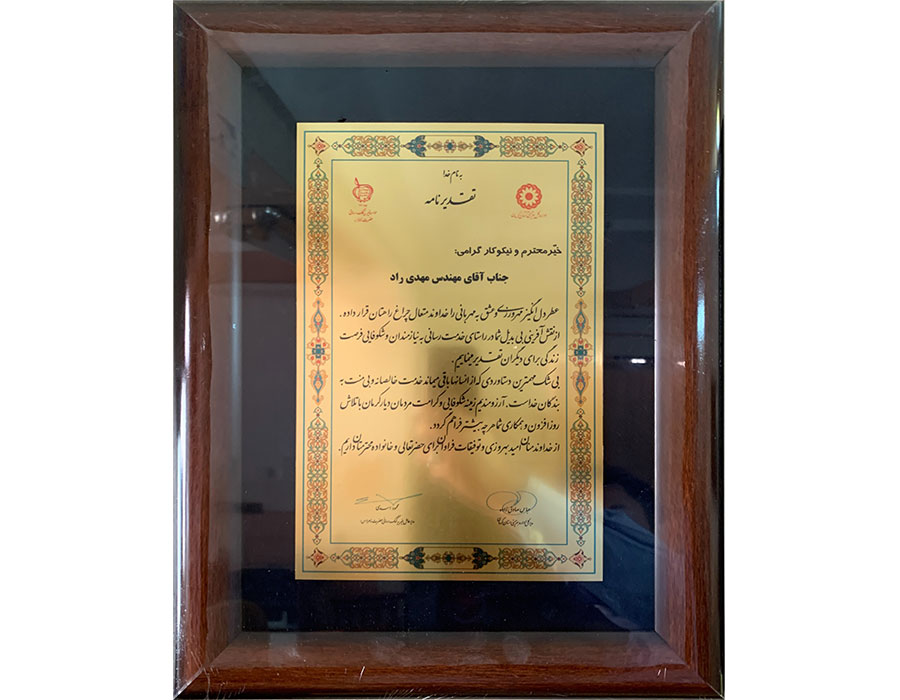 به نام خدا
تقدیرنامه
خیّر محترم و نیکوکار گرامی:
جناب آقای مهندس مهدی راد
عطر دل انگیز مهرورزی و عشق به مهربانی را خداوند متعال چراغ راهتان قرار داده.
از نقش آفرینی بی بدیل شما در راستای خدمت رسانی به نیازمندان و شکوفایی فرصت
زندگی برای دیگران تقدیر مینماییم.
بی شک مهمترین دستاوردی که از انسانها باقی میماند خدمت خالصانه و بی منت به
بندگان خداست. آرزومندیم زمینه شکوفایی و کرامت مردمان دیار کرمان با تلاش
روزافزون و همکاری شما هرچه بیشتر فراهم گردد.
از خداوند منان امید بهروزی و توفیقات فراوان برای حضرتعالی و خانواده محترمتان داریم.
عباس صادق زاده